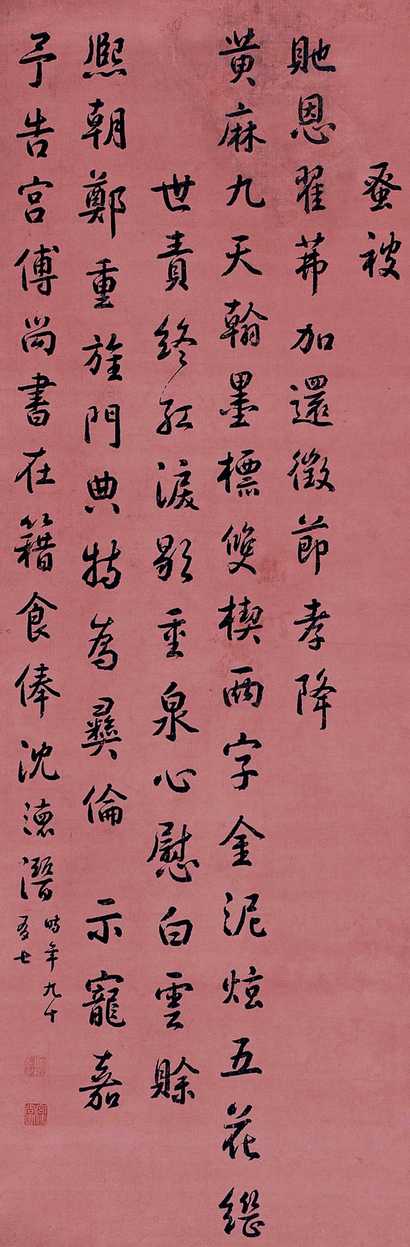 蚤被
貤恩翟茀加還徵節孝降
黃麻九天翰墨標雙楔兩字金泥炫五花綸
世責終紅淚歇重泉心慰白雲賒
熙朝鄭重旌門典特為彝倫示寵嘉
予告宮傅尚書在籍食俸沈德潛
時年九十
有七